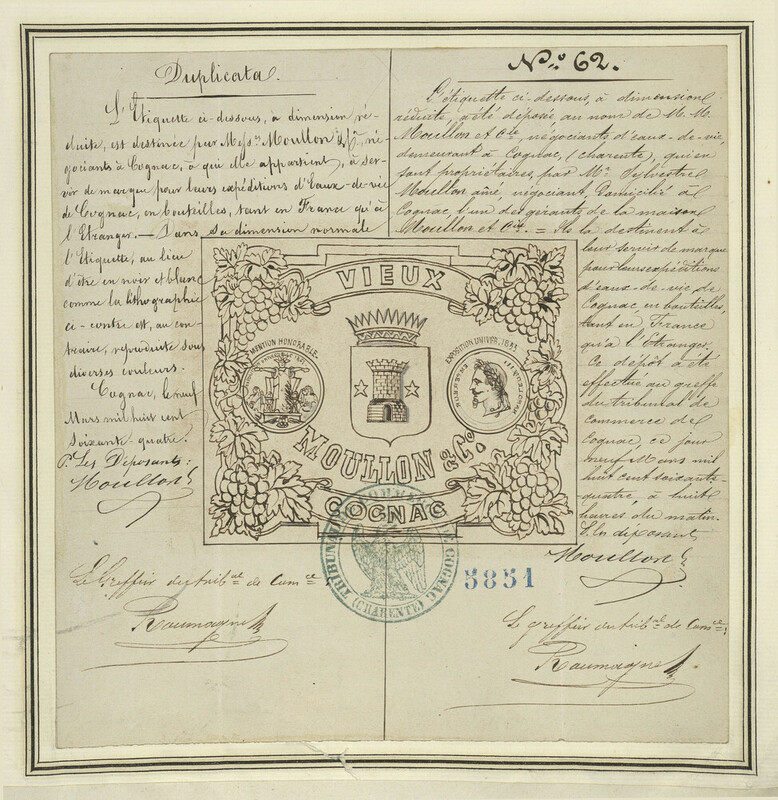 Duplicata.
L'Etiquette ci-dessous, à dimension ré-
duite, est destinée par Mess.rs Moullon & Cie, né-
gociants à Cognac, à qui elle appartient, à ser-
vir de marque pour leurs expéditions d'Eaux-de-vie
de Cognac, en bouteilles, tant en France qu'à
l'Etranger. — Dans sa dimension normale
l'Etiquette, au lieu
d'être en noir et blanc
comme la lithographie
ci-contre est, au con-
traire, reproduite sous
diverses couleurs.
Cognac, le neuf
Mars mil huit cent
soixante-quatre.
P. Les Déposants:
Moullon
Le Greffier du trib.al de Com.ce
Roumagne
N.o 62.
L'étiquette ci-dessous, à dimension
réduite, a été déposée au nom de M.M.
Moullon et Cie, négociants d'eaux-de-vie,
demeurant à Cognac, (charente), qui en
sont propriétaires, par Mr. Sylvestre
Moullon ainé, négociant, domicilié à
Cognac, l'un des gérants de la maison
Moullon et Cie. = Ils la destinent à
leur servir de marque
pour leurs expéditions
d'eaux-de-vie de
Cognac, en bouteilles,
tant en France
qu'à l'Etranger.
Ce dépôt a été
effectué au greffe
du tribunal de
commerce de
Cognac, ce jour
neuf Mars mil
huit cent soixante-
quatre, à huit
heures du matin.
Un déposant
Moullon
Le greffier du trib.al de Com.ce
Roumagne
VIEUX
MENTION HONORABLE
EXPOSITION UNIVER. 1855
MOULLON & Co.
COGNAC
TRIBUNAL DE COMMERCE DE COGNAC
(CHARENTE)
5851